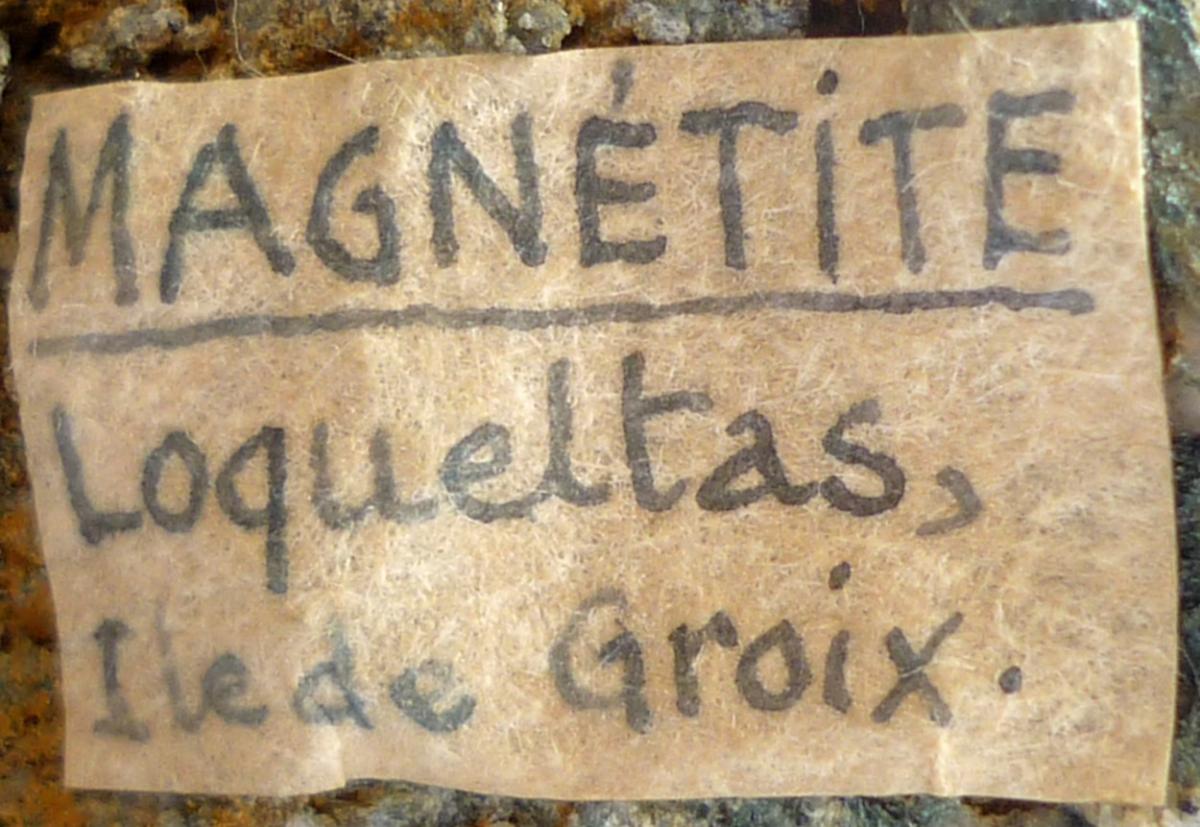 MAGNÉTiTE
Loqueltas,
Ile de Groix.